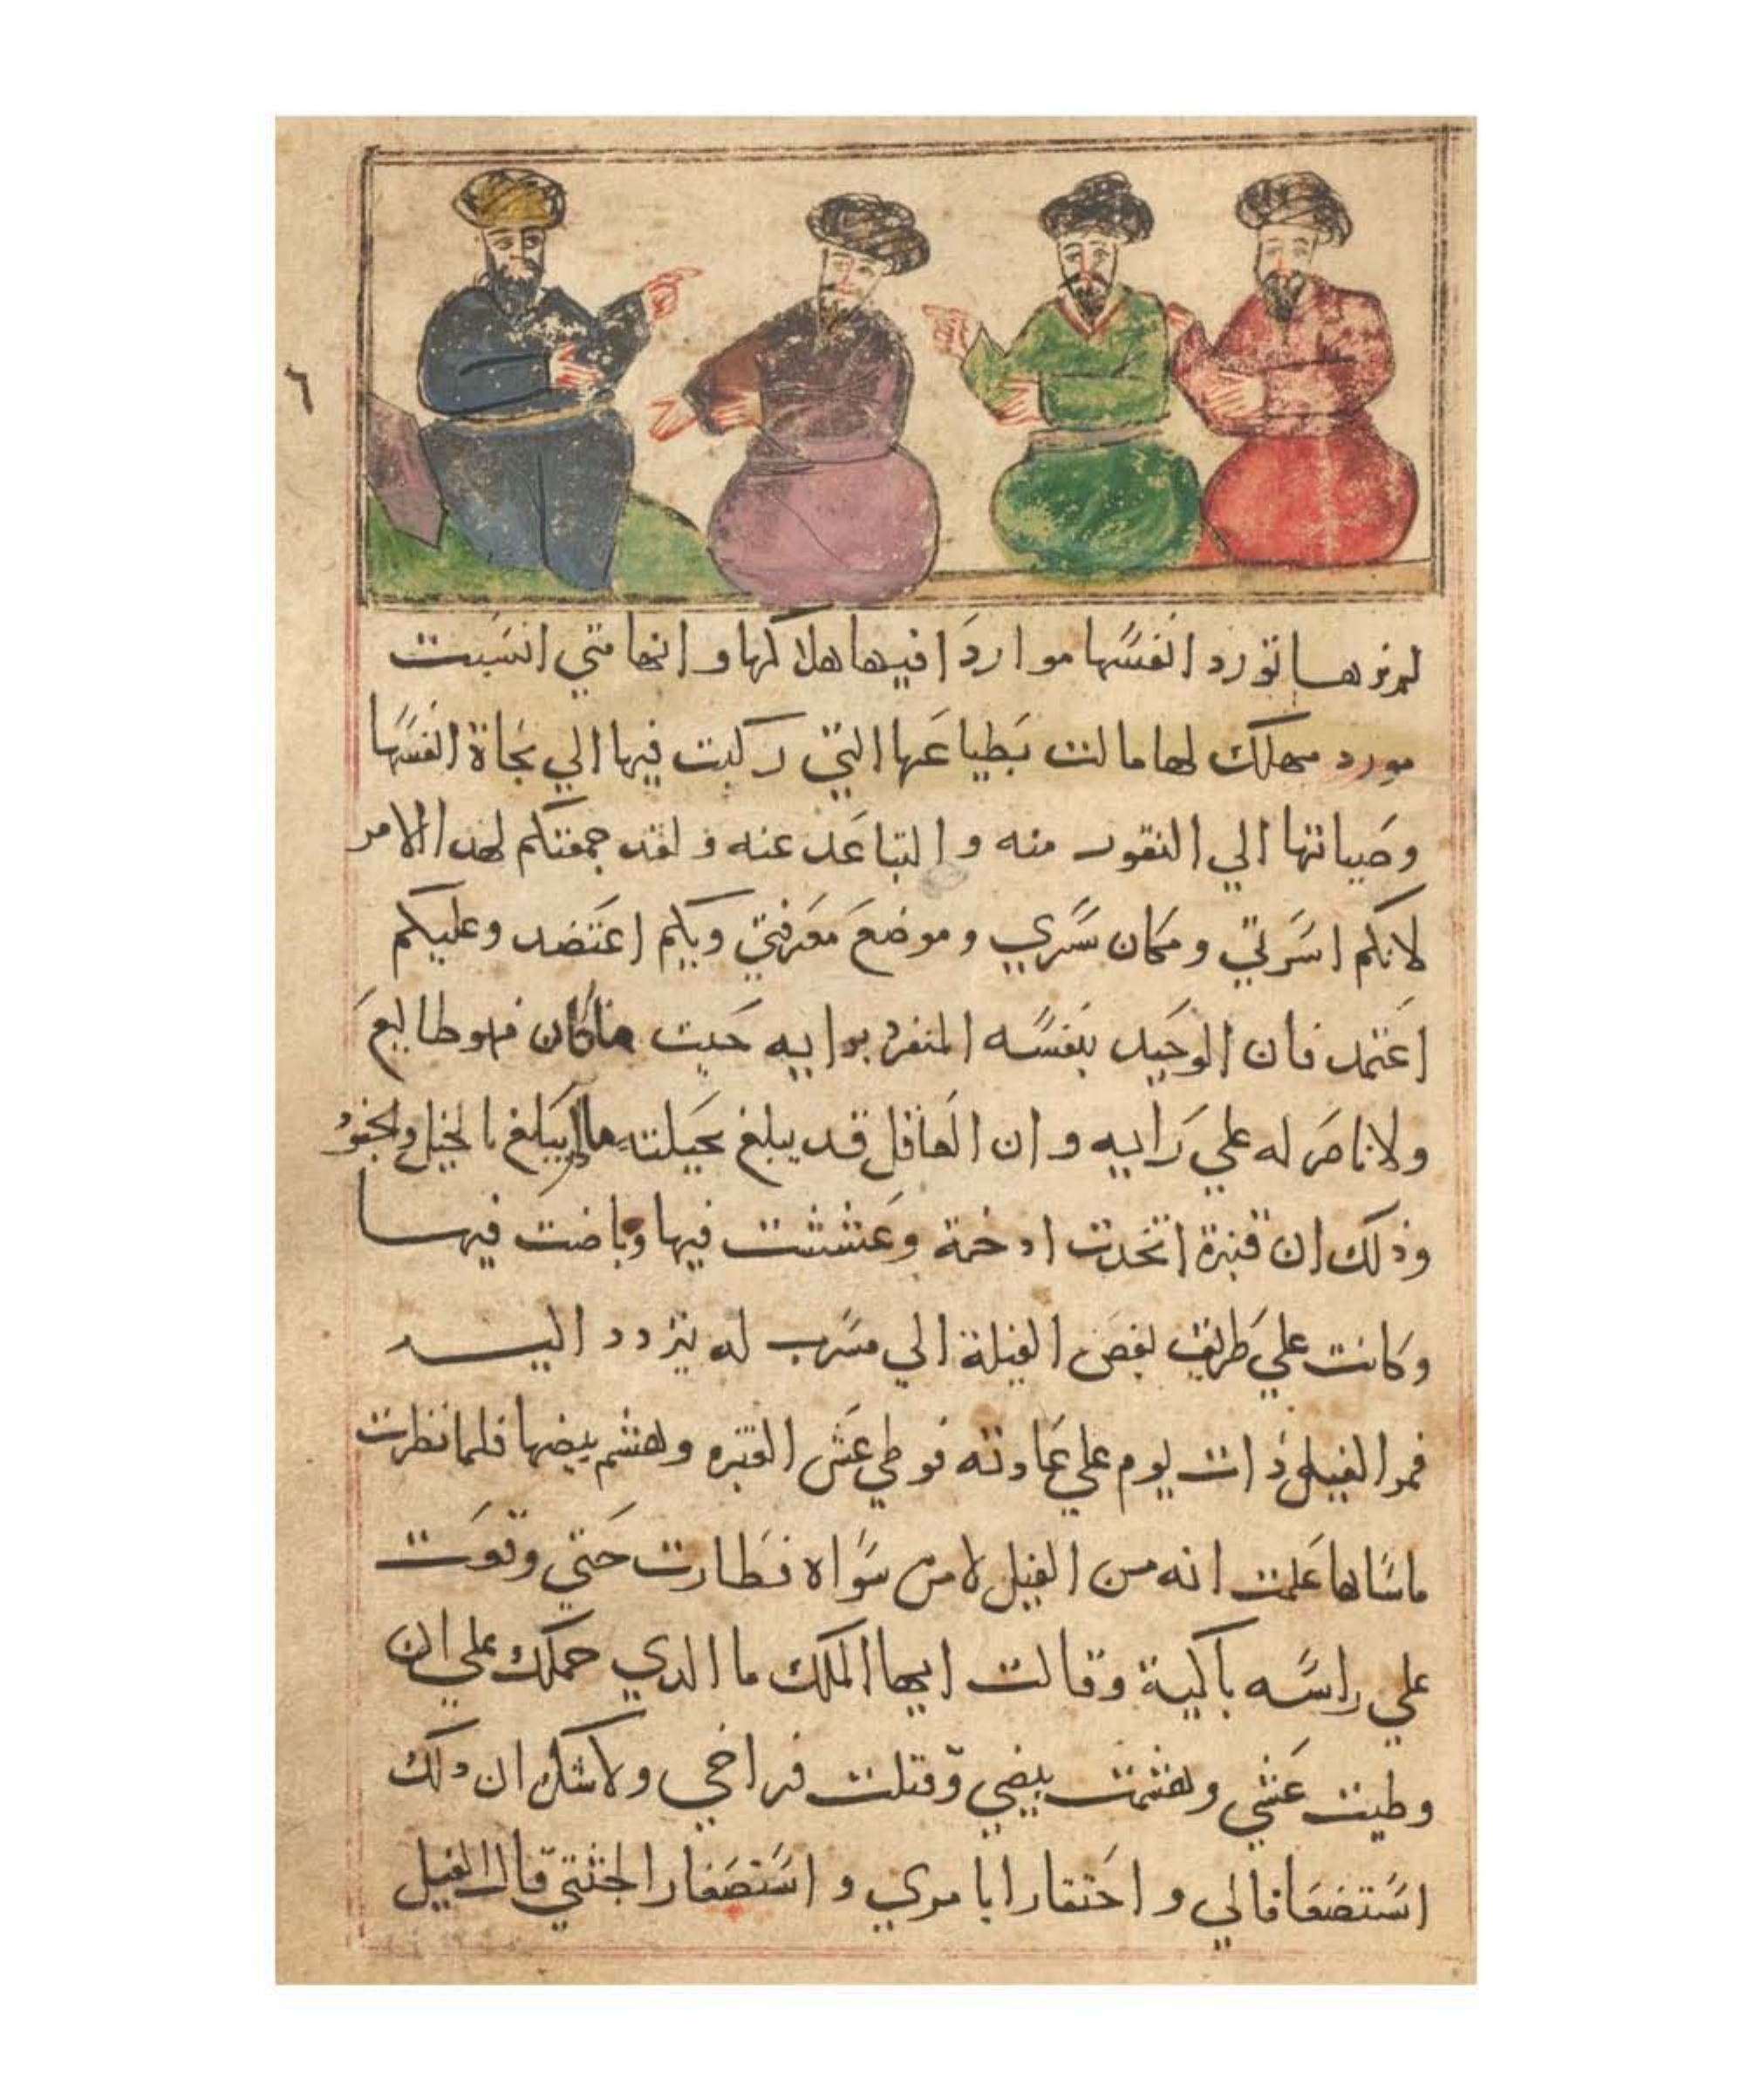 ٦
لم نرها تورد انفسها مواردا فيها هلاكها وانها متي انسبت
مورد مهلك لها مالت بطباعها التي ركبت فيها الي نجاة انفسها
وصيانتها الي النفور منه والتباعد عنه ولقد جمعتكم لهدا الامر
لانكم اسرتي ومكان سري وموضع معرفتي وبكم اعتضد وعليكم
اعتمد فان الوحيد بنفسه المنفرد برايه حيت ماكان فهو ظايع
ولا ناصر له علي رايه وان العاقل قد يبلغ بحيلته مالم يبلغ بالخيل والجنود
وذلك ان قنبرة اتخدت ادخمة وعششت فيها وباضت فيها
وكانت علي طريق بعض الفيلة الي مشرب له يتردد اليه
فمر الفيل ذات يوم علي عادته فوطي عش القنبره وهشم بيضها فلما نظرت
ماساها علمت انه من الفيل لا من سواه فطارت حتي وقعت
علي راسه باكية وقالت ايها الملك ما الدي حملك علي ان
وطيت عشي وهشمت بيضي وقتلت فراخي ولاشك ان دلك
استضعافا لي واحتقارا بامري واستصغارا لجثتي قال الفيل